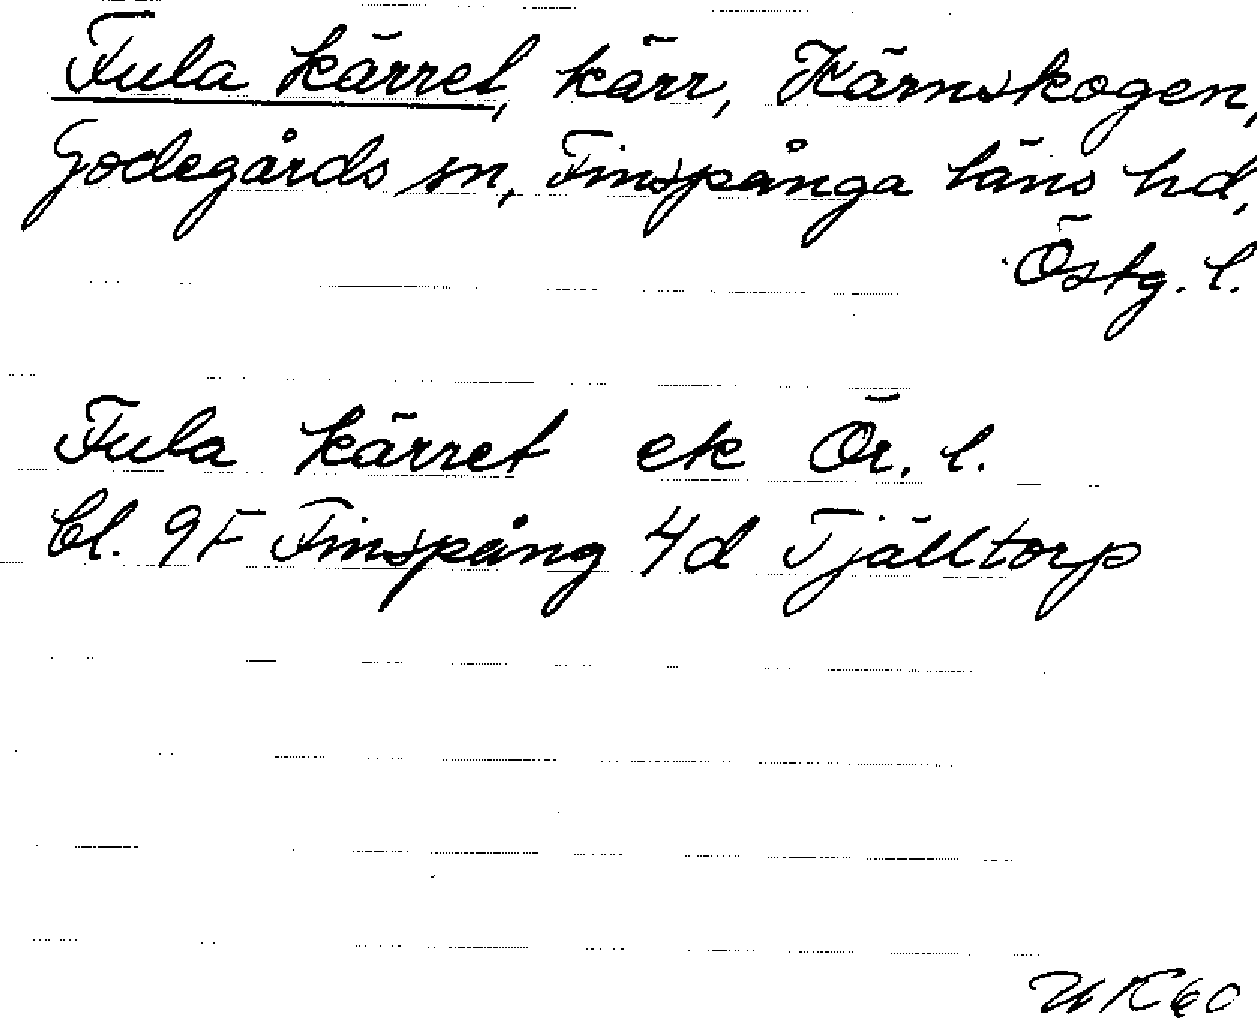 Fula kärret, kärr, Kärnskogen,
Godegårds sn, Finspånga läns hd,
Östg. l.
Fula kärret ek Ör. l.
bl. 9F Finspång 4d Tjälltorp
UK60